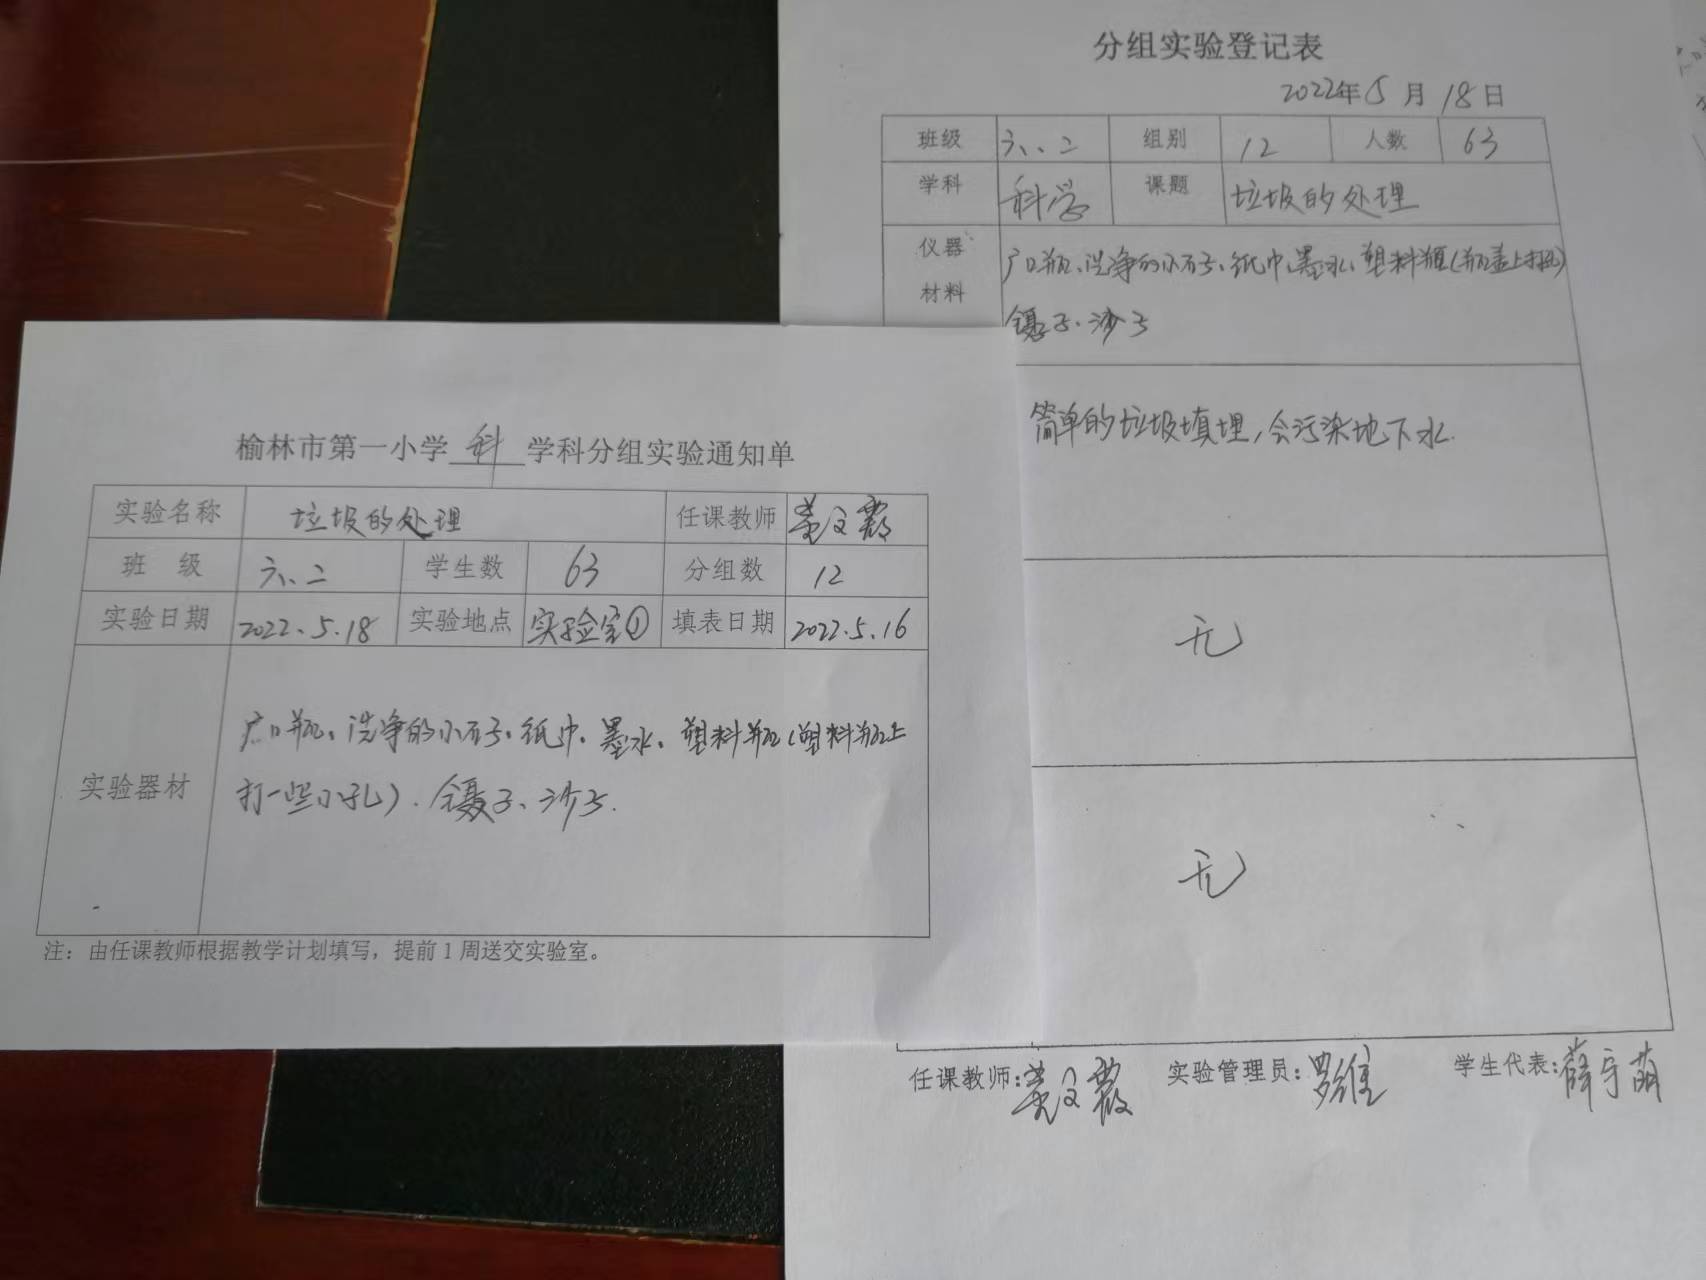 分组实验登记表
2022年5月18日
班级 六、二 组别 12 人数 63
学科 科学 课题 垃圾的处理
仪器材料 广口瓶、洗净的小石子、纸巾、墨水、塑料瓶(瓶盖上打孔)
镊子、沙子
简单的垃圾填埋,会污染地下水.
无
无
任课教师: 实验管理员:罗维 学生代表:薛宇萌
榆林市第一小学 科 学科分组实验通知单
实验名称 垃圾的处理 任课教师
班级 六、二 学生数 63 分组数 12
实验日期 2022.5.18 实验地点 实验室① 填表日期 2022.5.16
实验器材 广口瓶、洗净的小石子、纸巾、墨水、塑料瓶(塑料瓶上
打一些小孔)、镊子、沙子.
注:由任课教师根据教学计划填写,提前1周送交实验室。